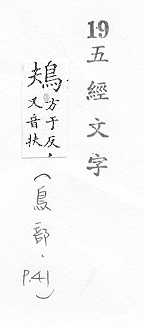 19五經文字
鳺方于反
又音扶
(鳥部，P.41)